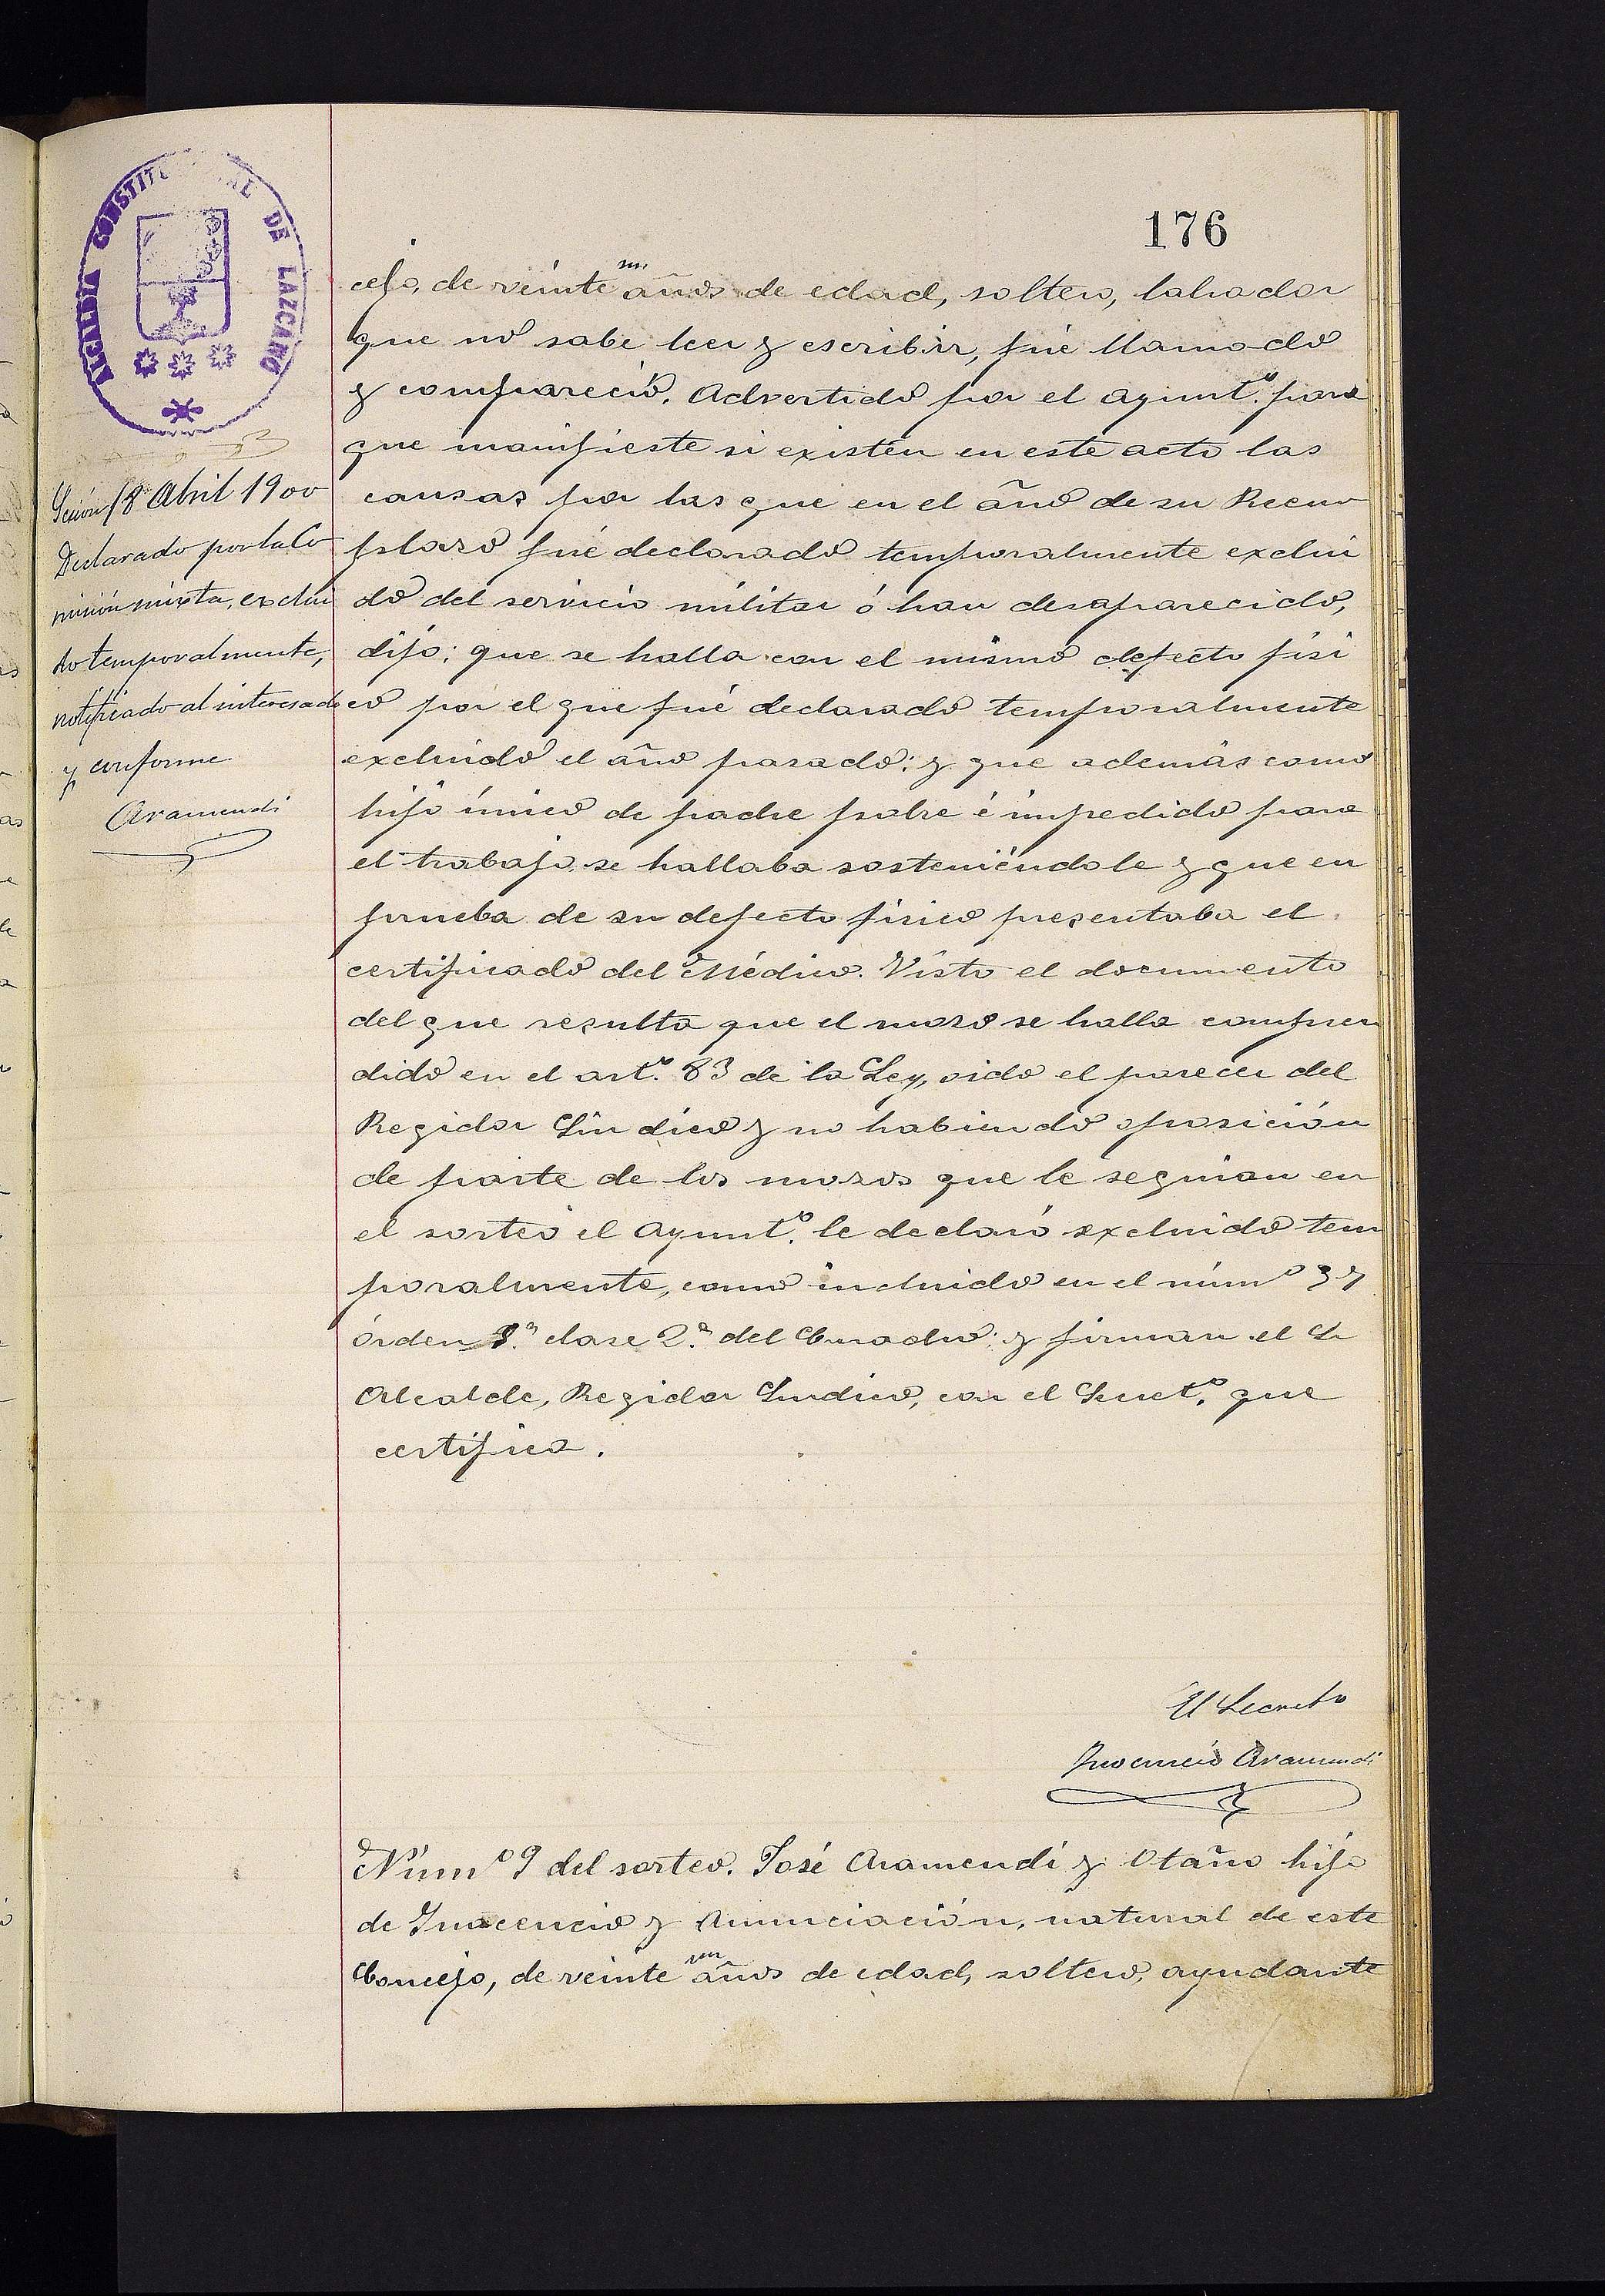 176
ALCALDIA CONSTITUCIONAL DE LAZCANO
Sesión 18 Abril 1900
Declarado por la Co
misión mixta, exclui
do temporalmente,
notificado al interesado
y conforme
Aramendi
cejo, de veinte un años de edad, soltero, labrador
que no sabe leer y escribir, fué llamado
y compareció. Advertido por el Ayuntº. para
que manifieste si existen en este acto las
causas por las que en el año de su Reem
plazo fué declarado temporalmente exclui
do del servicio militar ó han desaparecido,
dijo: que se halla con el mismo defecto fisi
co por el que fué declarado temporalmente
excluido el año pasado: y que además como
hijo único de padre pobre é impedido para
el trabajo, se hallaba sosteniéndole y que en
prueba de su defecto fisico presentaba el
certificado del Médico. Visto el documento
del que resulta que el mozo se halla compren
dido en el artº. 83 de la Ley, oido el parecer del
Regidor Sindico y no habiendo oposición
de parte de los mozos que le seguian en
el sorteo el Ayuntº. le declaró excluido tem
poralmente, como incluido en el númº 37
órden 3º. clase 2ª. del Cuadro: y firman el Sr
Alcalde, Regidor Sindico, con el Secretº. que
certifica.
El Secreto
Inocencio Aramendi
Númº 9 del sorteo. José Aramendi y Otaño hijo
de Inocencio y Anunciación, natural de este
Concejo, de veinte un años de edad, soltero, ayudante